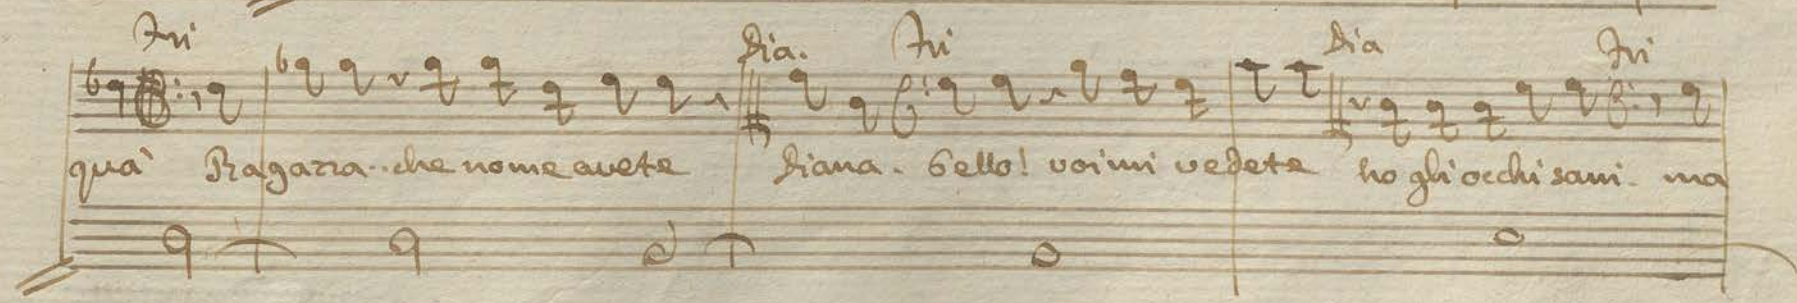 Dia. Dia
quà Ragazza.. che nome avete Diana. bello! voi mi vedete ho gli occhi sani. ma